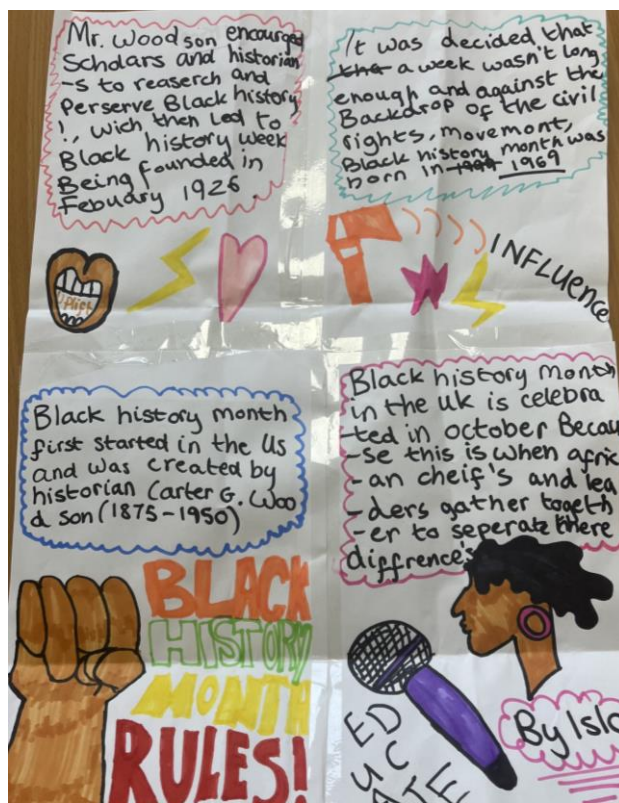 Mr. Woodson encouraged
Scholars and historian
-s to reaserch and
Perserve Black history
!, wich then Led to
Black history week
Being founded in
Febuary 1926.
It was decided that
a week wasn't long
enough and against the
Backdrop of the civil
rights, movemont,
Black history month was
born in 1969
Uplift
INFLUENCE
Black history month
first started in the Us
and was created by
historian Carter G. Woo
d son (1875-1950)
Black history month
in the uk is celebra
-ted in october Becau
-se this is when afric
-an cheif's and lea
-ders gather togeth
-er to seperate there
diffrences
BLACK
HISTORY
MONTH
RULES!
ED
UC
ATE
By Isl